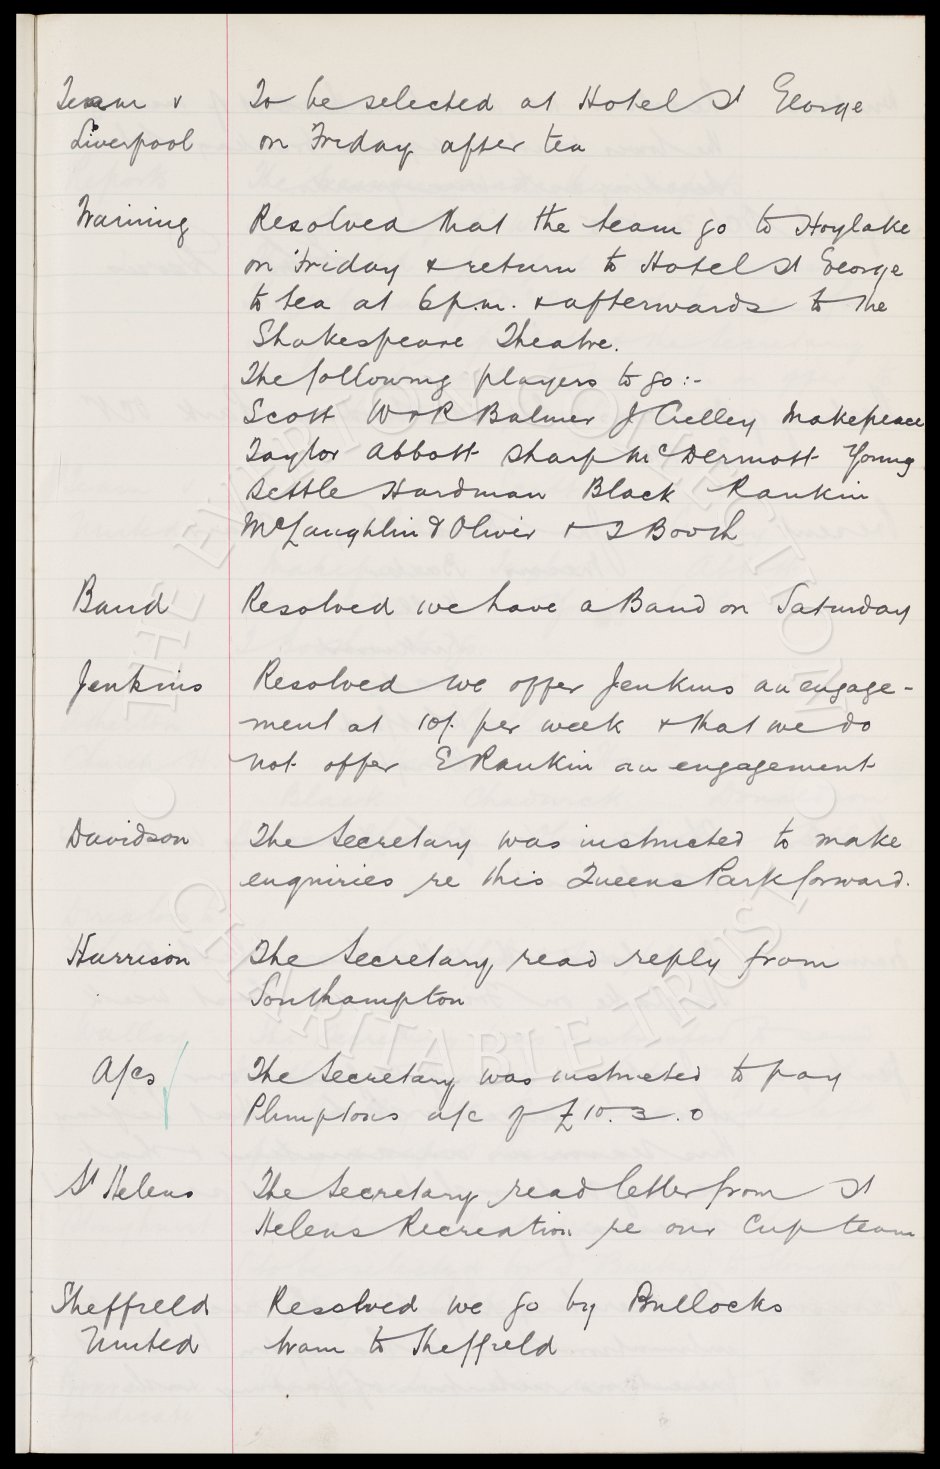 Team v
Liverpool
To be selected at Hotel St George
on Friday after tea
Training
Resolved that the team go to Hoylake
on Friday & return to Hotel St George
to tea at 6 p.m. & afterwards to the
Shakespeare Theatre.
The following players to go:-
Scott W & R Balmer J Crelley Makepeace
Taylor Abbott Sharp McDermott Young
Settle Hardman Black Rankin
McLaughlin & Oliver & T Booth
Band
Resolved we have a Band on Saturday
Jenkins
Resolved we offer Jenkins an engage-
ment at 10/. per week & that we do
not offer E Rankin an engagement
Davidson
The Secretary was instructed to make
enquiries re this Queens Park forward.
Harrison
The Secretary read reply from
Southampton
A/cs
The Secretary was instructed to pay
Plumptons a/c of £10.3.0
St Helens
The Secretary read letter from St
Helens Recreation re our Cup team
Sheffield
United
Resolved we go by Bullocks
tram to Sheffield
THE EVERTON COLLECTION
CHARITABLE TRUST